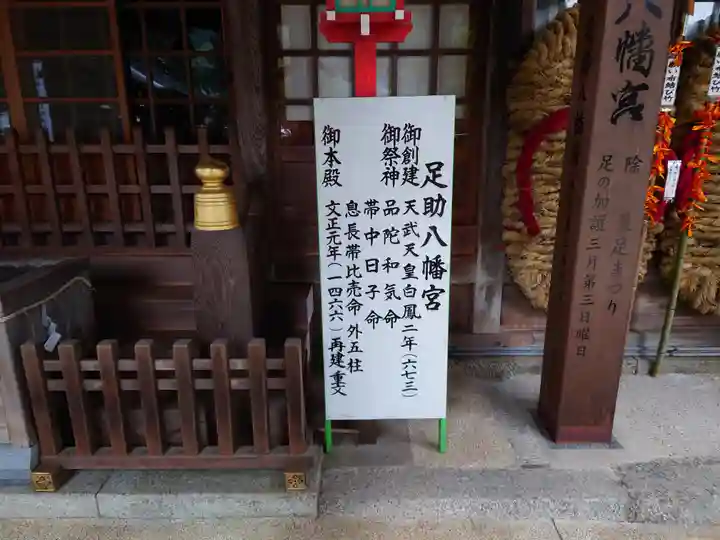 足助八幡宮
御創建 天武天皇白鳳二年(六七三)
御祭神 品陀和気命
帯中日子命
息長帯比売命 外五柱
御本殿 文正元年(一四六六)再建 重文
八幡宮
足の加護三月第三日曜日
足まつり